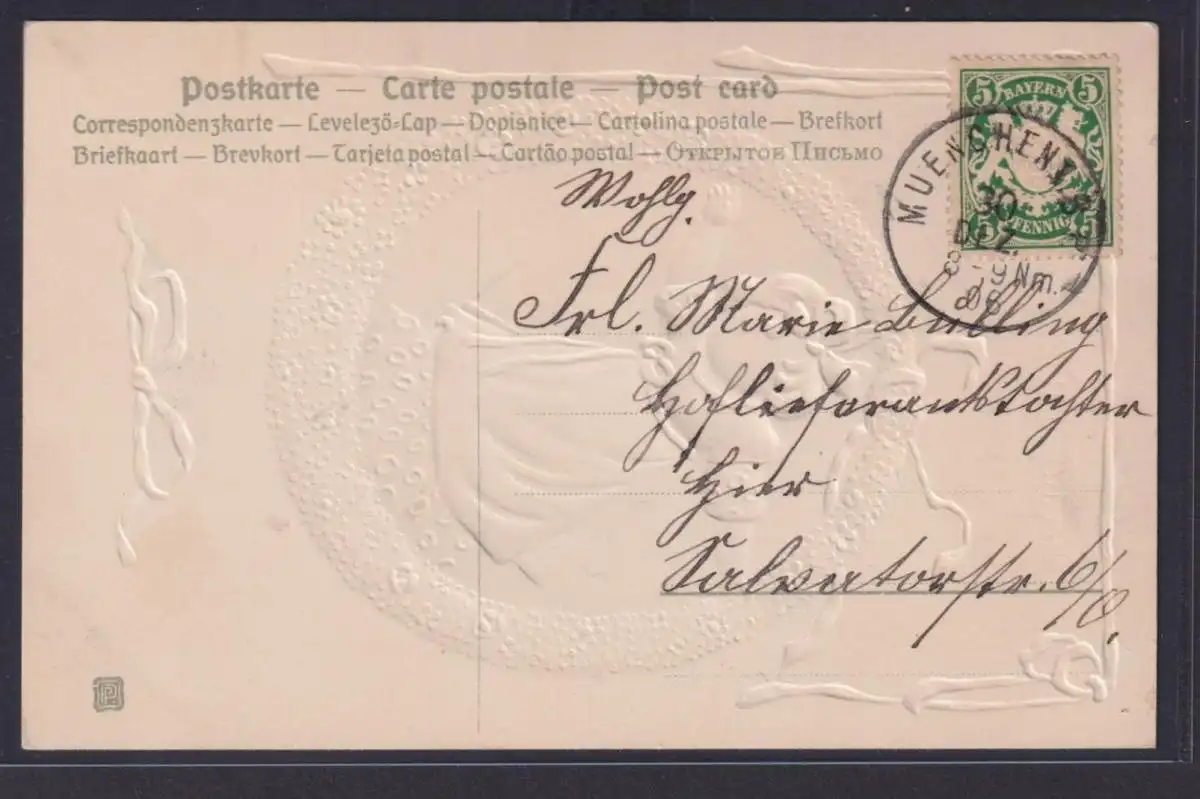 Postkarte — Carte postale — Post card
Correspondenzkarte — Levelező-Lap — Dopisnice — Cartolina postale — Brefkort
Briefkaart — Brevkort — Tarjeta postal — Cartão postal — Открытое Письмо
5 BAYERN 5
5 PFENNIG 5
MUENCHEN
30
DEZ.
Nm.
06
Wohlg.
Frl. Marie Bulling
Hoflieferantstochter
Hier
Salvatorstr. 6/0.